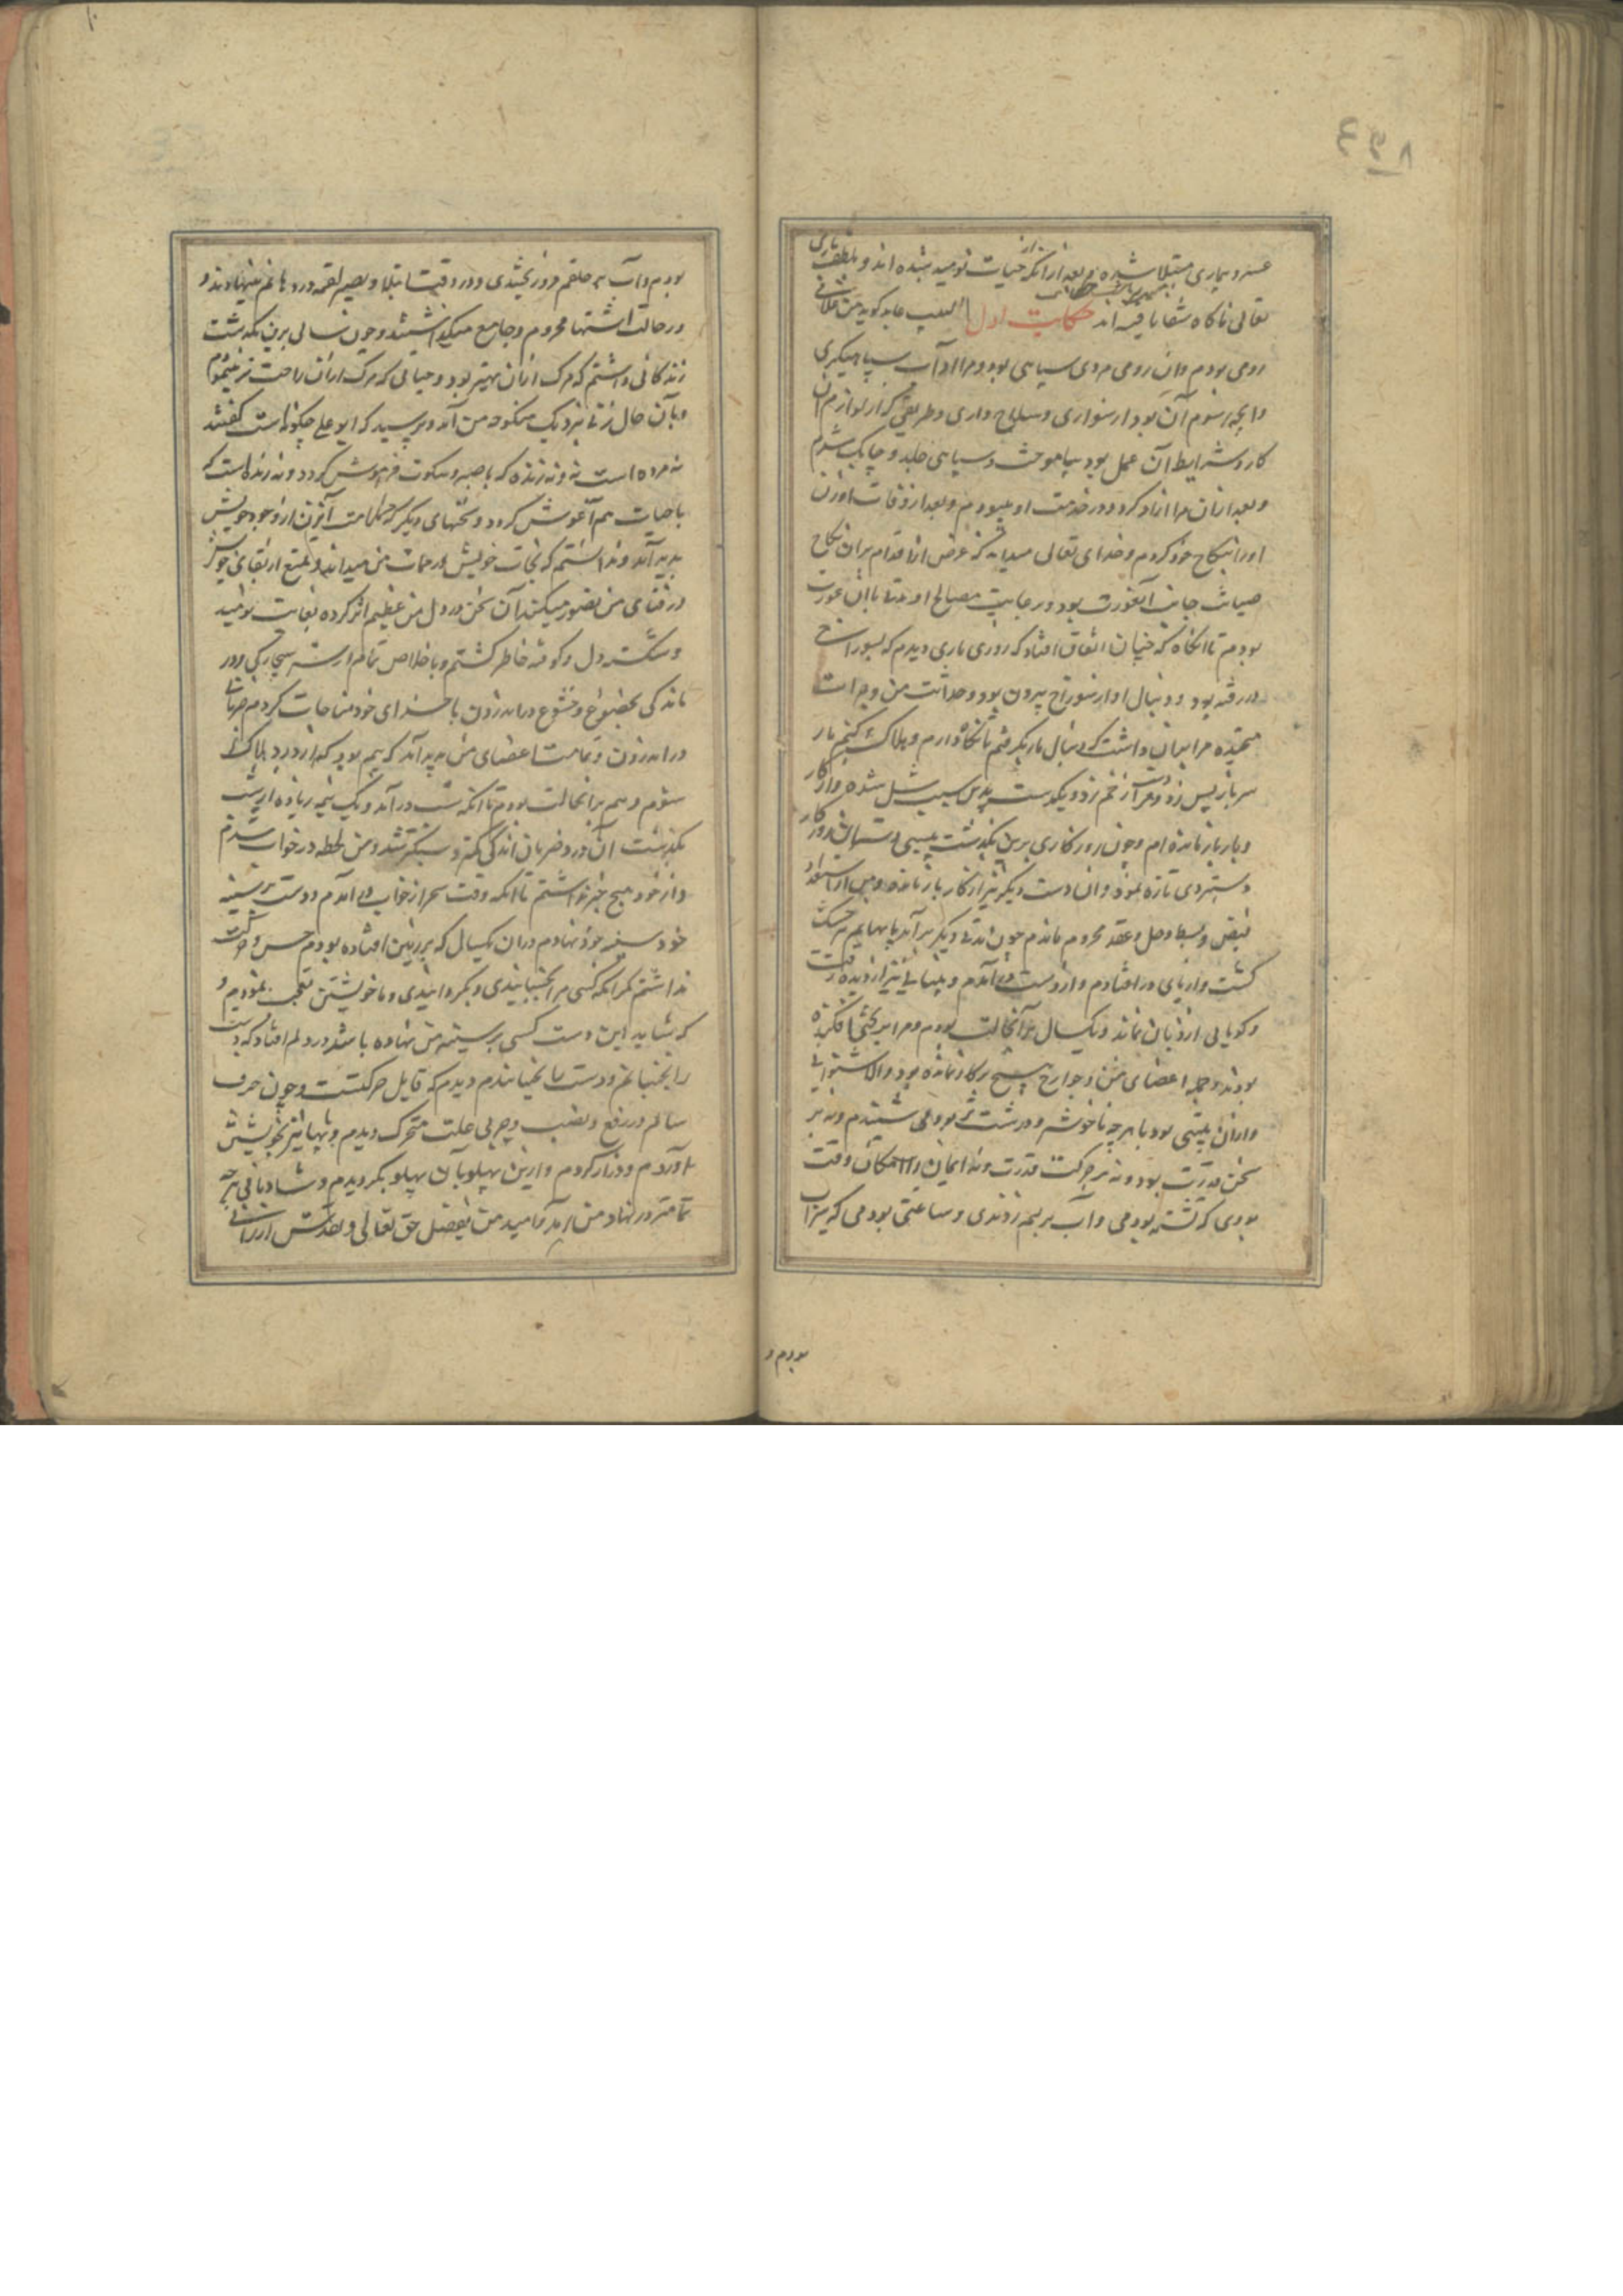 ٨٩٤
عسر و بیماری مبتلا شده و بعد از آنکه از حیات نومید شده اند و بلطف باری
تعالی ناکاه شفا یافته اند حکایت اول لبیب عابد کوید من غلامی
رومی بودم و آن رومی مردی سپاهی بود و مرا آداب سپاهیکری
و آنچه رسوم آن بود از سواری و سلاح داری و طریقی که از لوازم آن
کار و شرایط آن عمل بود بیاموخت و سپاهی جلد و چابک شدم
و بعد از آن مرا آزاد کرد و در خدمت او میبودم و بعد از وفات او زن
او را بنکاح خود کردم و خدای تعالی میداند که غرض از اقدام بران نکاح
صیانت جانب آنعورت بود و رعایت مصالح او مدتی با آن عورت
بودم تا انکاه که چنان اتفاق افتاد که روزی ماری دیدم که بسوراخ
در رفته بود و دنبال او از سوراخ بیرون بود و حداثت من و جرات
مرا بران داشت که دنبال مار بکرفتم تا نکاه دارم و هلاک کنم مار
سر باز پس زد و مرا بر دست زخم زد و یکدست بدین سبب شل شده و از کار
و بار باز مانده ام و چون روزکاری برین بکذشت بی سببی روزکار
دستبردی تازه نمود و آن دست دیکر نیز از کار باز مانده و من از استعداد
قبض و بسط و حل و عقد محروم ماندم چون مدتی دیکر بر آمد پایهایم خشک
کشت و از پای در افتادم و از دست در آمدم و بینایی نیز از دیده رفت
و کویایی از زبان نماند و یکسال بر آنحالت بودم و مرا بر تختی افکنده
بودند و جمله اعضای من و جوارح هیچ بر کار نمانده بود و الا شنوایی
و از آن بلیتی بود تا هر چه ناخوشتر و درشت تر بود می شنیدم و نه بر
سخن قدرت بود و نه بر حرکت قدرت و نه ایمان را امکان وقت
بودی که تشنه بودمی و آب بر لبم نزدندی و ساعتی بودمی که سیراب
بودم و
بودم و آب بر حلقم فرو ریختندی و در وقت امتلا و بسیم لقمه در دهانم مینهادند و
در حالت اشتها محروم و جایع میکذاشتند و چون سالی برین بکذشت
زندکانی داشتم که مرک از آن بهتر بود و حیاتی که مرک از آن راحت تر مینمود
و بآن حال زنی نزدیک منکوحه من آمد و پرسید که ابو علی چکونه است کفتند
نه مرده است نه و نه زنده که با صبر و سکوت فراموش کردد و نه زنده است که
با حیات هم آغوش کردد و سخنهای دیکر که علامت آن از وجود خویش
پدید آمد و دانستم که نجات خویش در ممات من میداند و تمتع از بقای خویش
در فنای من تصور میکند آن سخن در دل من عظیم اثر کرده بغایت نومید
و شکسته دل و کوفته خاطر کشتم و باخلاص تمام از سر بیچارکی و در
ماندکی بخضوع و خشوع در اندرون با خدای خود مناجات کردم ضربانی
در اندرون و تمامت اعضای من پدید آمد که بیم بود که از درد هلاک
شوم و هم بر آنحالت بودم تا انکه شب در آمد و یک نیمه زیاده از شب
بکذشت آن درد و ضربان اندکی کمتر و سبکتر شد و من لحظه در خواب شدم
و از خود هیچ خبر نداشتم تا انکه وقت سحر از خواب در آمدم و دست بر سینه
خود سینه خود نهادم و در آن یکسال که بر زمین افتاده بودم حس و حرکت
نداشتم مکر انکه کسی مرا بجنبانیدی و بکردانیدی و با خویشتن تعجب نمودم و
که شاید این دست کسی بر سینه من نهاده باشد در دلم افتاد که دست
را بجنبانم و دست را بجنبانیدم دیدم که قابل حرکتست و چون حرف
سالم در رفع و نصب و جر بی علت متحرک دیدم و پایها نیز بخویشتن
آوردم و دراز کردم و از این پهلو بآن پهلو بکردیدم و شادمانی هر چه
تمامتر در نهاد من آمد و امید من بفضل حق تعالی و بقدرتش